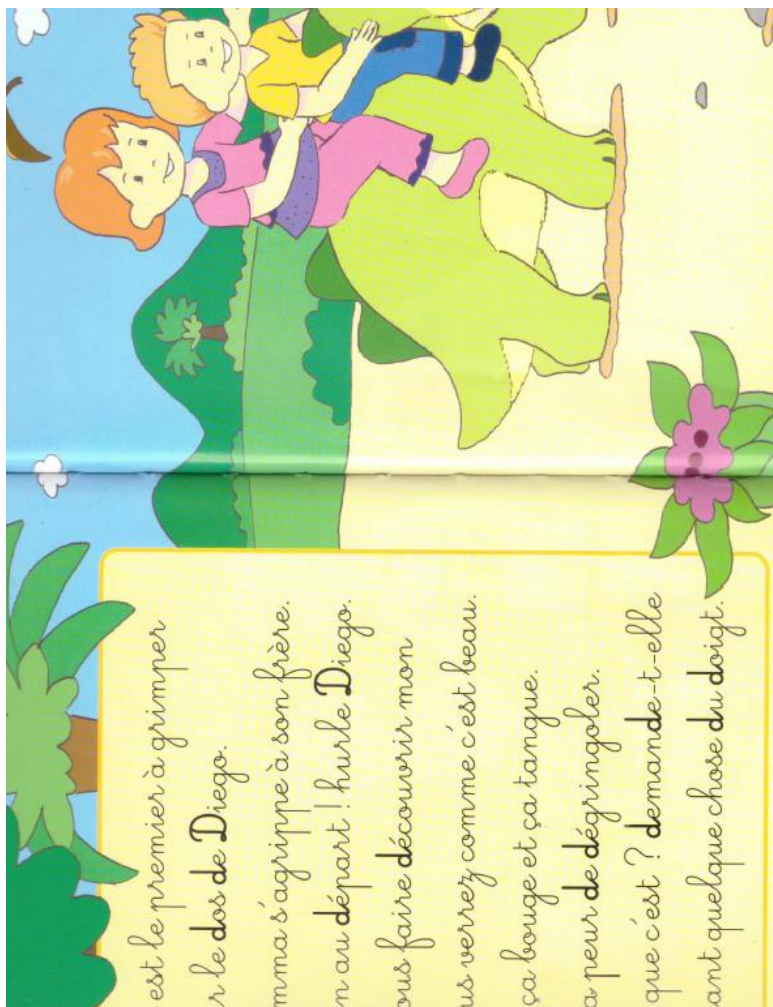 est le premier à grimper
r le dos de Diego.
mma s'agrippe à son frère.
n au départ ! hurle Diego.
ous faire découvrir mon
us verrez comme c'est beau.
ça bouge et ça tangue.
a peur de dégringoler.
que c'est ? demande-t-elle
ant quelque chose du doigt.